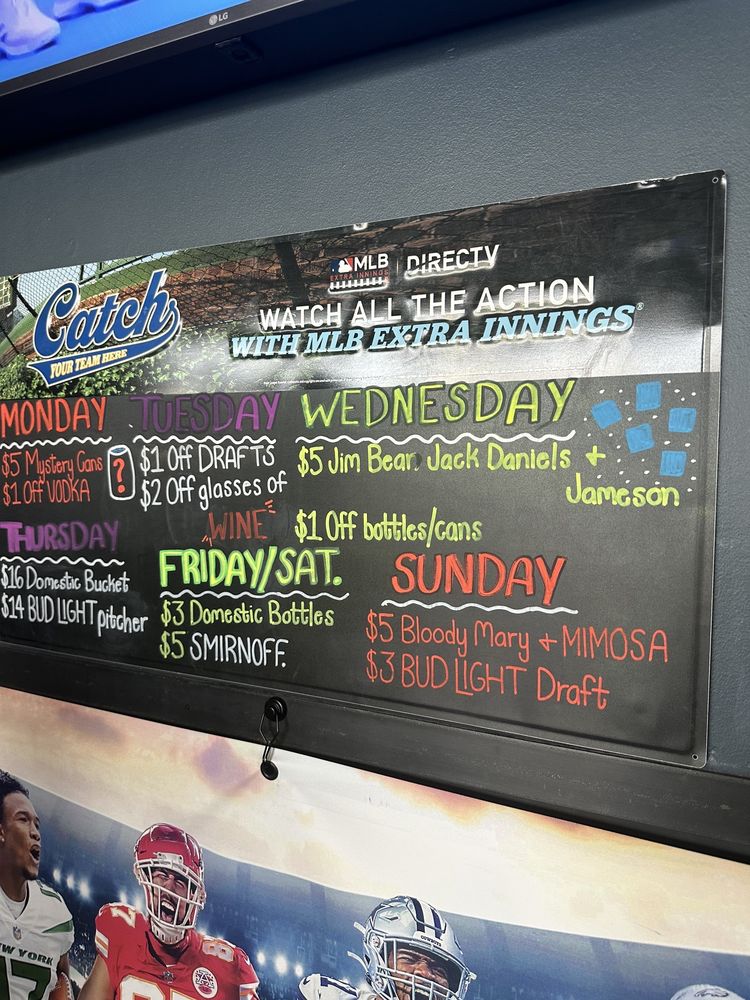 LG
MLB
EXTRA INNINGS
DIRECTV
Catch
YOUR TEAM HERE
WATCH ALL THE ACTION
WITH MLB EXTRA INNINGS®
MONDAY
$5 Mystery Cans
?
$1 Off VODKA
TUESDAY
$1 Off DRAFTS
$2 Off glasses of
WINE
WEDNESDAY
$5 Jim Beam Jack Daniels +
Jameson
$1 Off bottles/cans
THURSDAY
$16 Domestic Bucket
$14 BUD LIGHT pitcher
FRIDAY/SAT.
$3 Domestic Bottles
$5 SMIRNOFF.
SUNDAY
$5 Bloody Mary + MIMOSA
$3 BUD LIGHT Draft
W YORK
17
87
COWBOYS